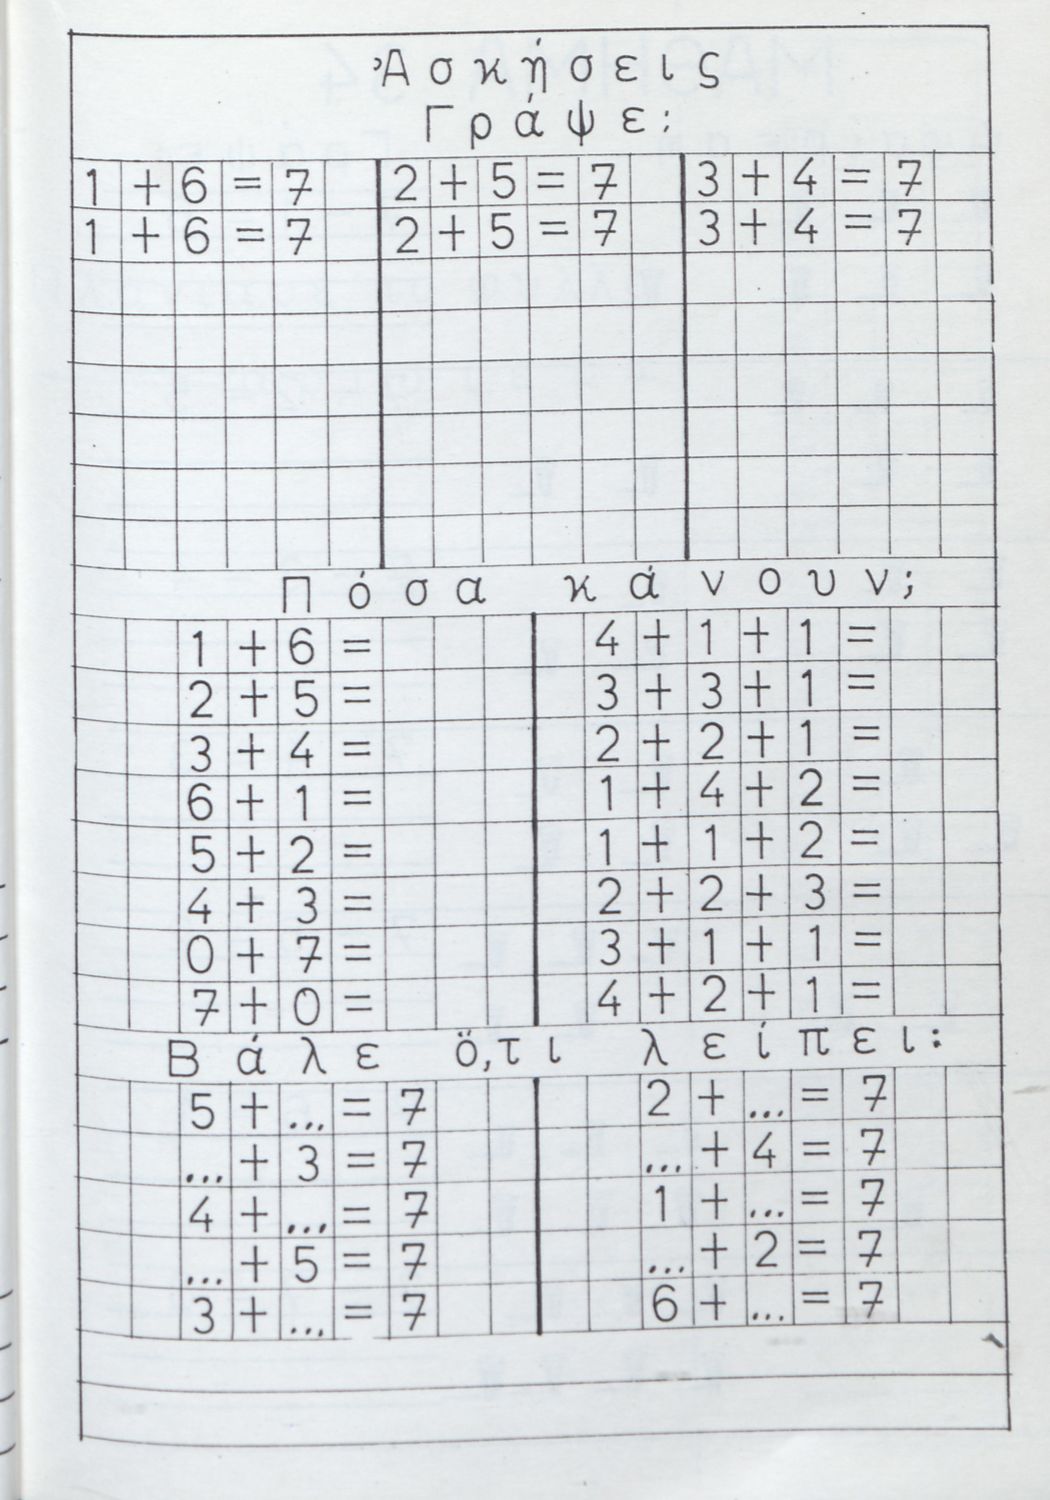 Ἀσκήσεις
Γράψε:
1 + 6 = 7 2 + 5 = 7 3 + 4 = 7
1 + 6 = 7 2 + 5 = 7 3 + 4 = 7
Πόσα κάνουν;
1 + 6 = 4 + 1 + 1 =
2 + 5 = 3 + 3 + 1 =
3 + 4 = 2 + 2 + 1 =
6 + 1 = 1 + 4 + 2 =
5 + 2 = 1 + 1 + 2 =
4 + 3 = 2 + 2 + 3 =
0 + 7 = 3 + 1 + 1 =
7 + 0 = 4 + 2 + 1 =
Βάλε ὅ,τι λείπει:
5 + ... = 7 2 + ... = 7
... + 3 = 7 ... + 4 = 7
4 + ... = 7 1 + ... = 7
... + 5 = 7 ... + 2 = 7
3 + ... = 7 6 + ... = 7